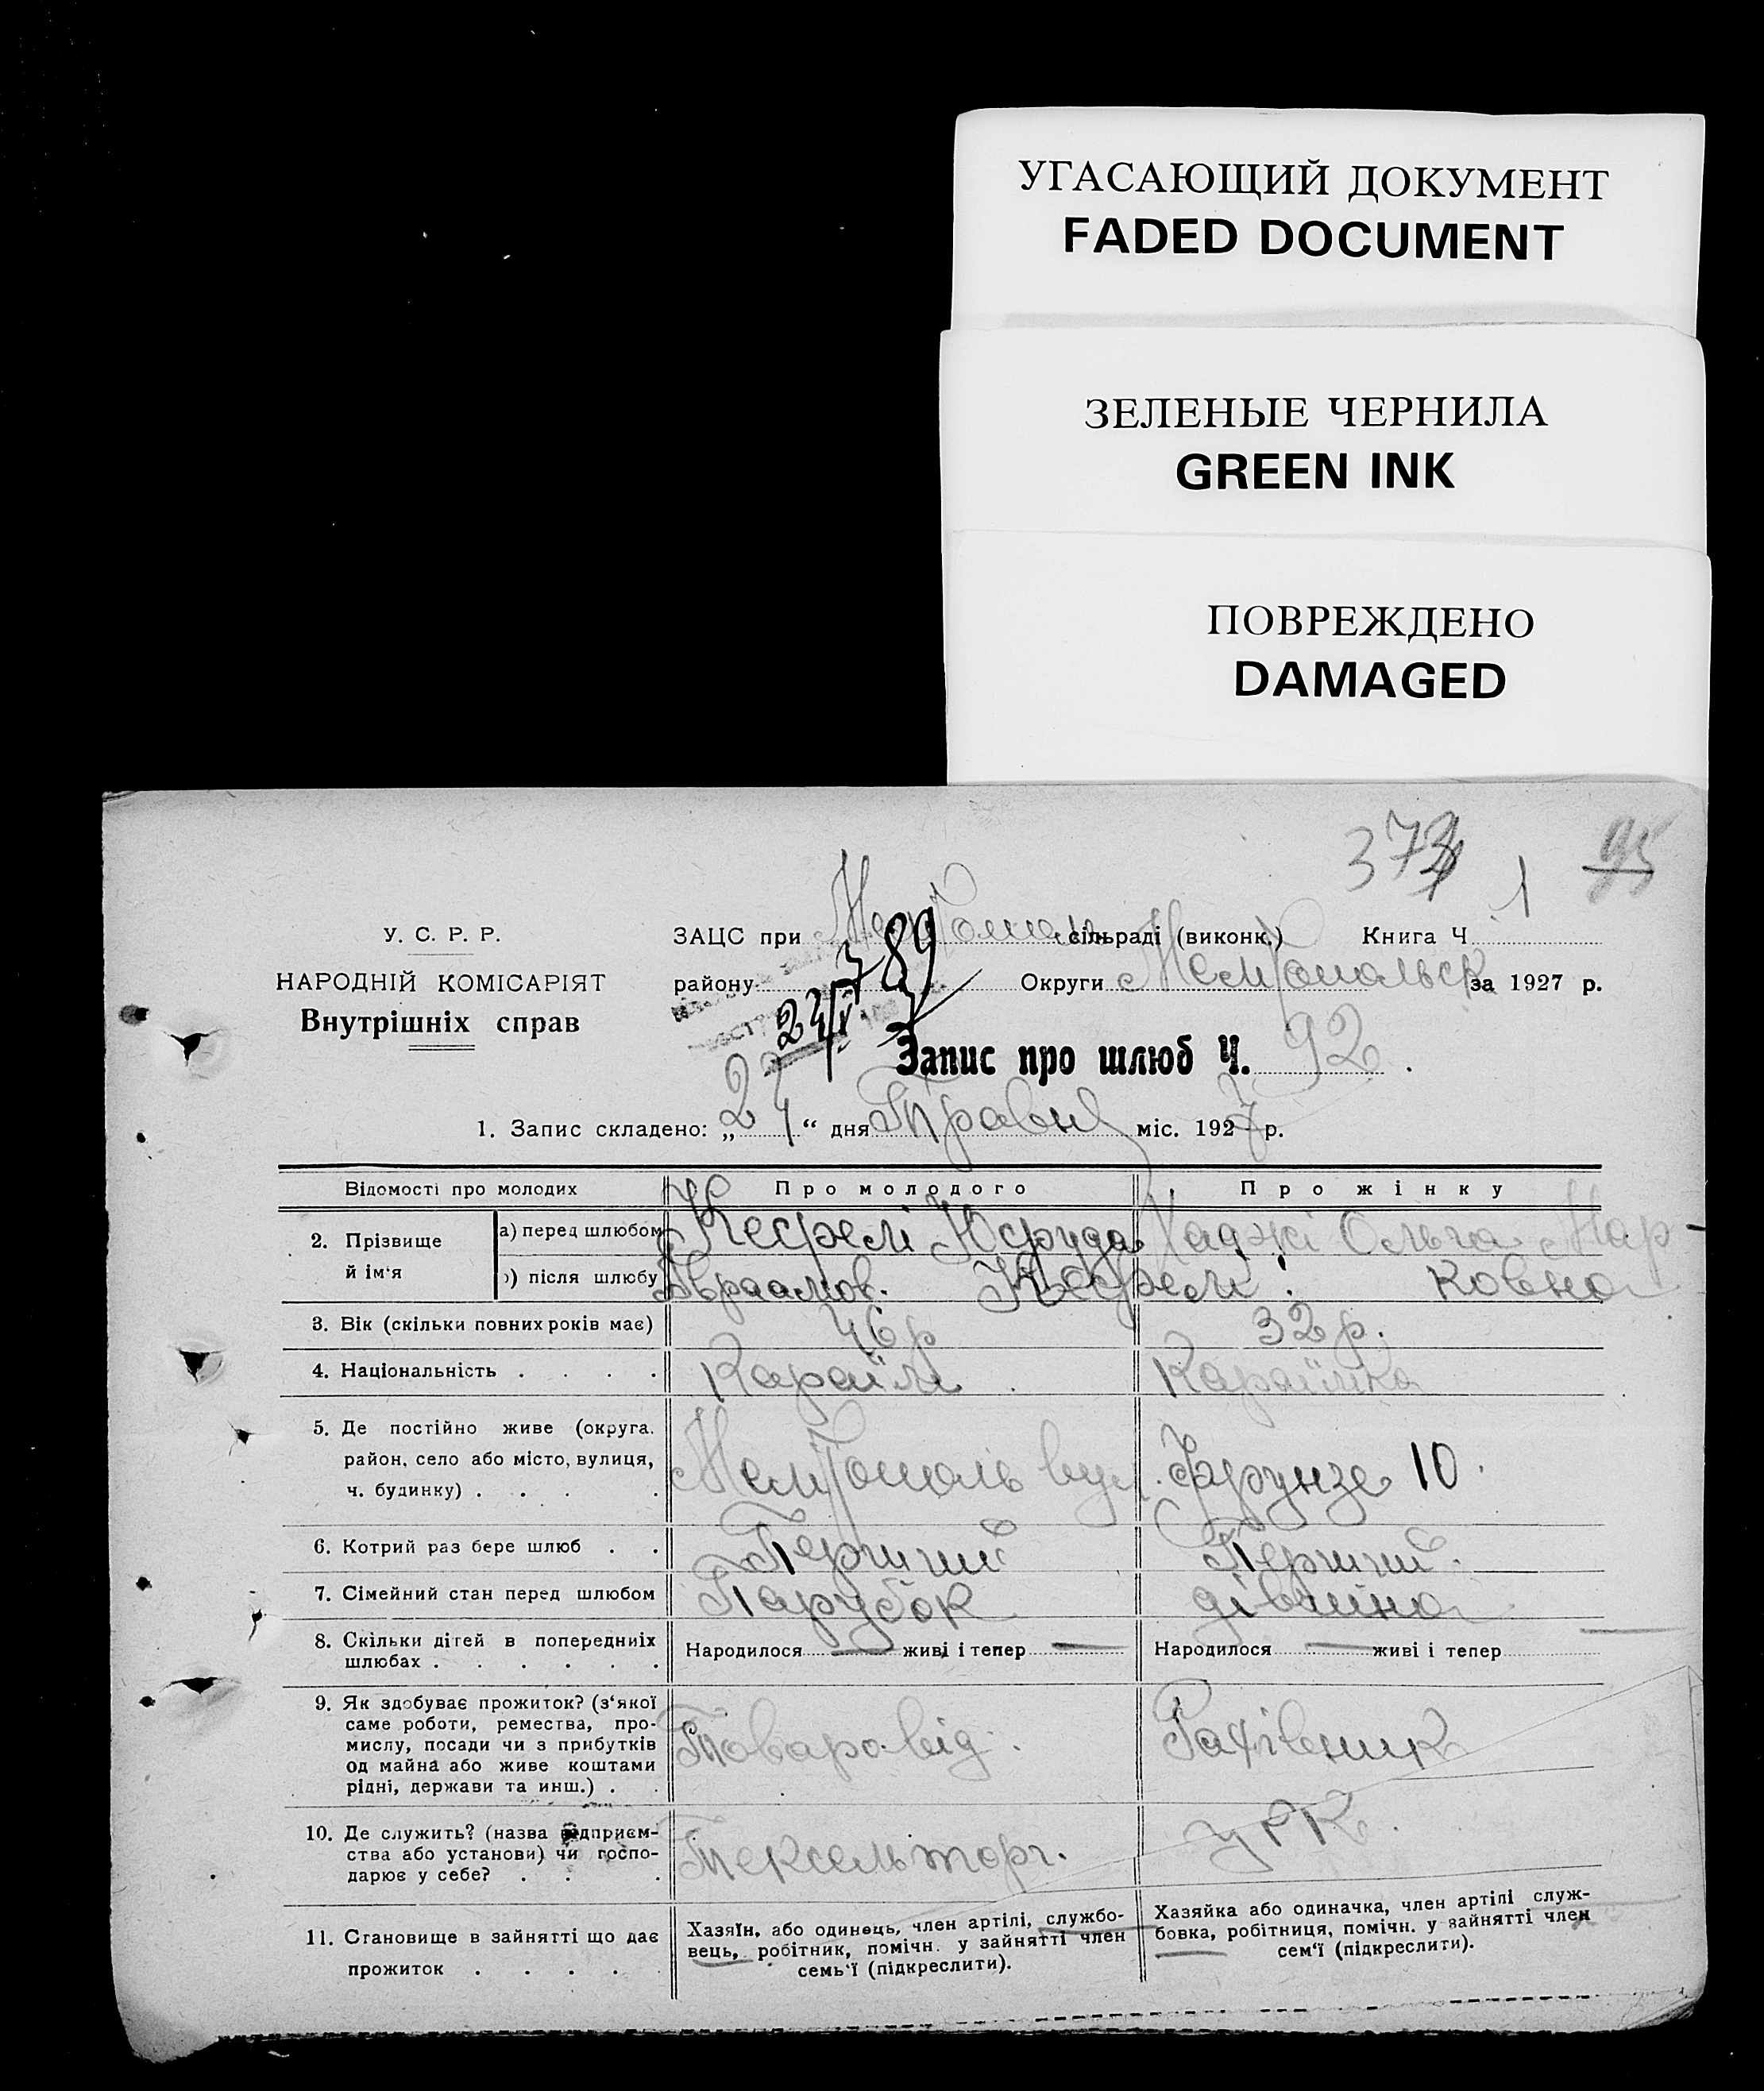 УГАСАЮЩИЙ ДОКУМЕНТ
FADED DOCUMENT
ЗЕЛЕНЫЕ ЧЕРНИЛА
GREEN INK
ПОВРЕЖДЕНО
DAMAGED
373 95
1
У. С. Р. Р.
НАРОДНІЙ КОМІСАРІЯТ
Внутрішніх справ
ЗАЦС при сільраді (виконк.) Книга Ч
району 789 Округи Мелітопольск за 1927 р.
24/V
Запис про шлюб Ч. 92
1. Запис складено: „24“ дня Травня міс. 1927 р.
Відомості про молодих Про молодого Про жінку
2. Прізвище й ім'я
а) перед шлюбом Кефелі Юфуда Хаджі Ольга Мар-
) після шлюбу Авраамов. Кефелі. ковна
3. Вік (скільки повних років має) 46 р 32 р.
4. Національність . . . . Караїм Караїмка
5. Де постійно живе (округа.
район, село або місто, вулиця,
ч. будинку) . . . . Мелітополь вул. Фрунзе 10.
6. Котрий раз бере шлюб . . Перший Перший
7. Сімейний стан перед шлюбом Парубок дівчина
8. Скільки дітей в попередниіх
шлюбах . . . . . .
Народилося — живі і тепер — Народилося — живі і тепер
9. Як здобуває прожиток? (з'якої
саме роботи, ремества, про-
мислу, посади чи з прибутків
од майна або живе коштами
рідні, держави та инш.) . .
Товаровід. Рахівник
10. Де служить? (назва відприєм-
ства або установи) чи госпо-
дарює у себе? . . .
Тексельторг. УРК.
11. Становище в зайнятті що дає
прожиток . . . .
Хазяїн, або одинець, член артілі, службо-
вець, робітник, помічн. у зайнятті член
семь'ї (підкреслити).
Хазяйка або одиначка, член артілі служ-
бовка, робітниця, помічн. у зайнятті член
сем'ї (підкреслити).